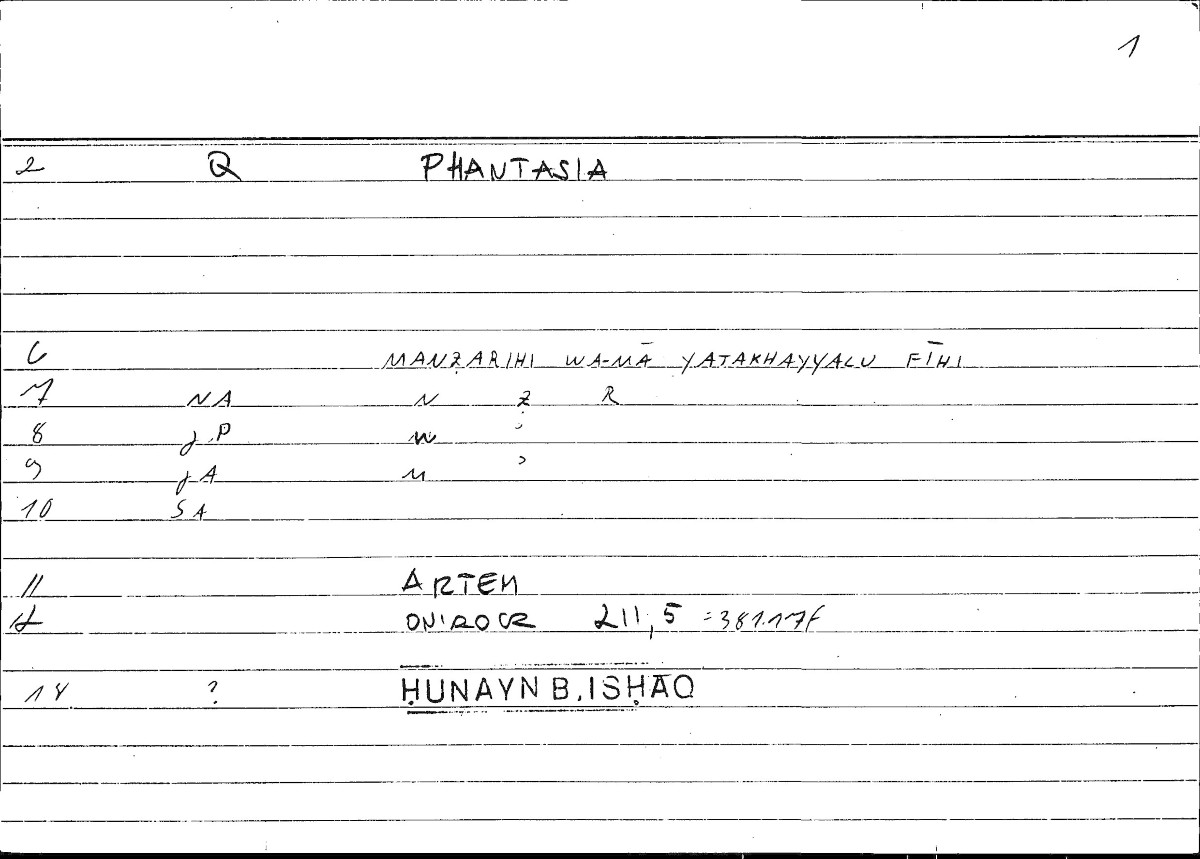 1
2 Q PHANTASIA
6 MANẒARIHI WA-MĀ YATAKHAYYALU FĪHI
7 NA N Ẓ R
8 jP w ʾ
9 jA M ʾ
10 SA
11 ARTEM
12 ONIROCR 211,5 =381.17f
14 ? ḤUNAYN B. ISḤĀQ